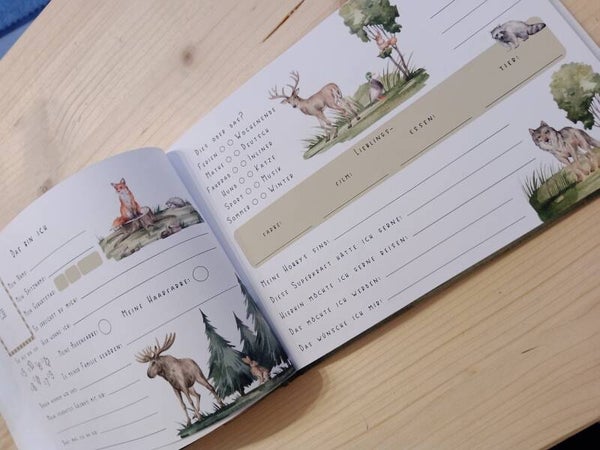 Das bin ich
Mein Name:
Mein Spitzname:
Mein Geburtstag:
So erreichst du mich:
Hier wohne ich:
Meine Augenfarbe:
Meine Haarfarbe:
Zu meiner Familie gehören:
Dies oder das?
Ferien Wochenende
Mathe Deutsch
Fahrrad Inliner
Hund Katze
Sport Musik
Sommer Winter
Lieblings-
Farbe:
Film:
Essen:
Tier:
Meine Hobbys sind:
Diese Superkraft hätte ich gerne:
Hierhin möchte ich gerne reisen:
Das möchte ich werden:
Das wünsche ich mir: